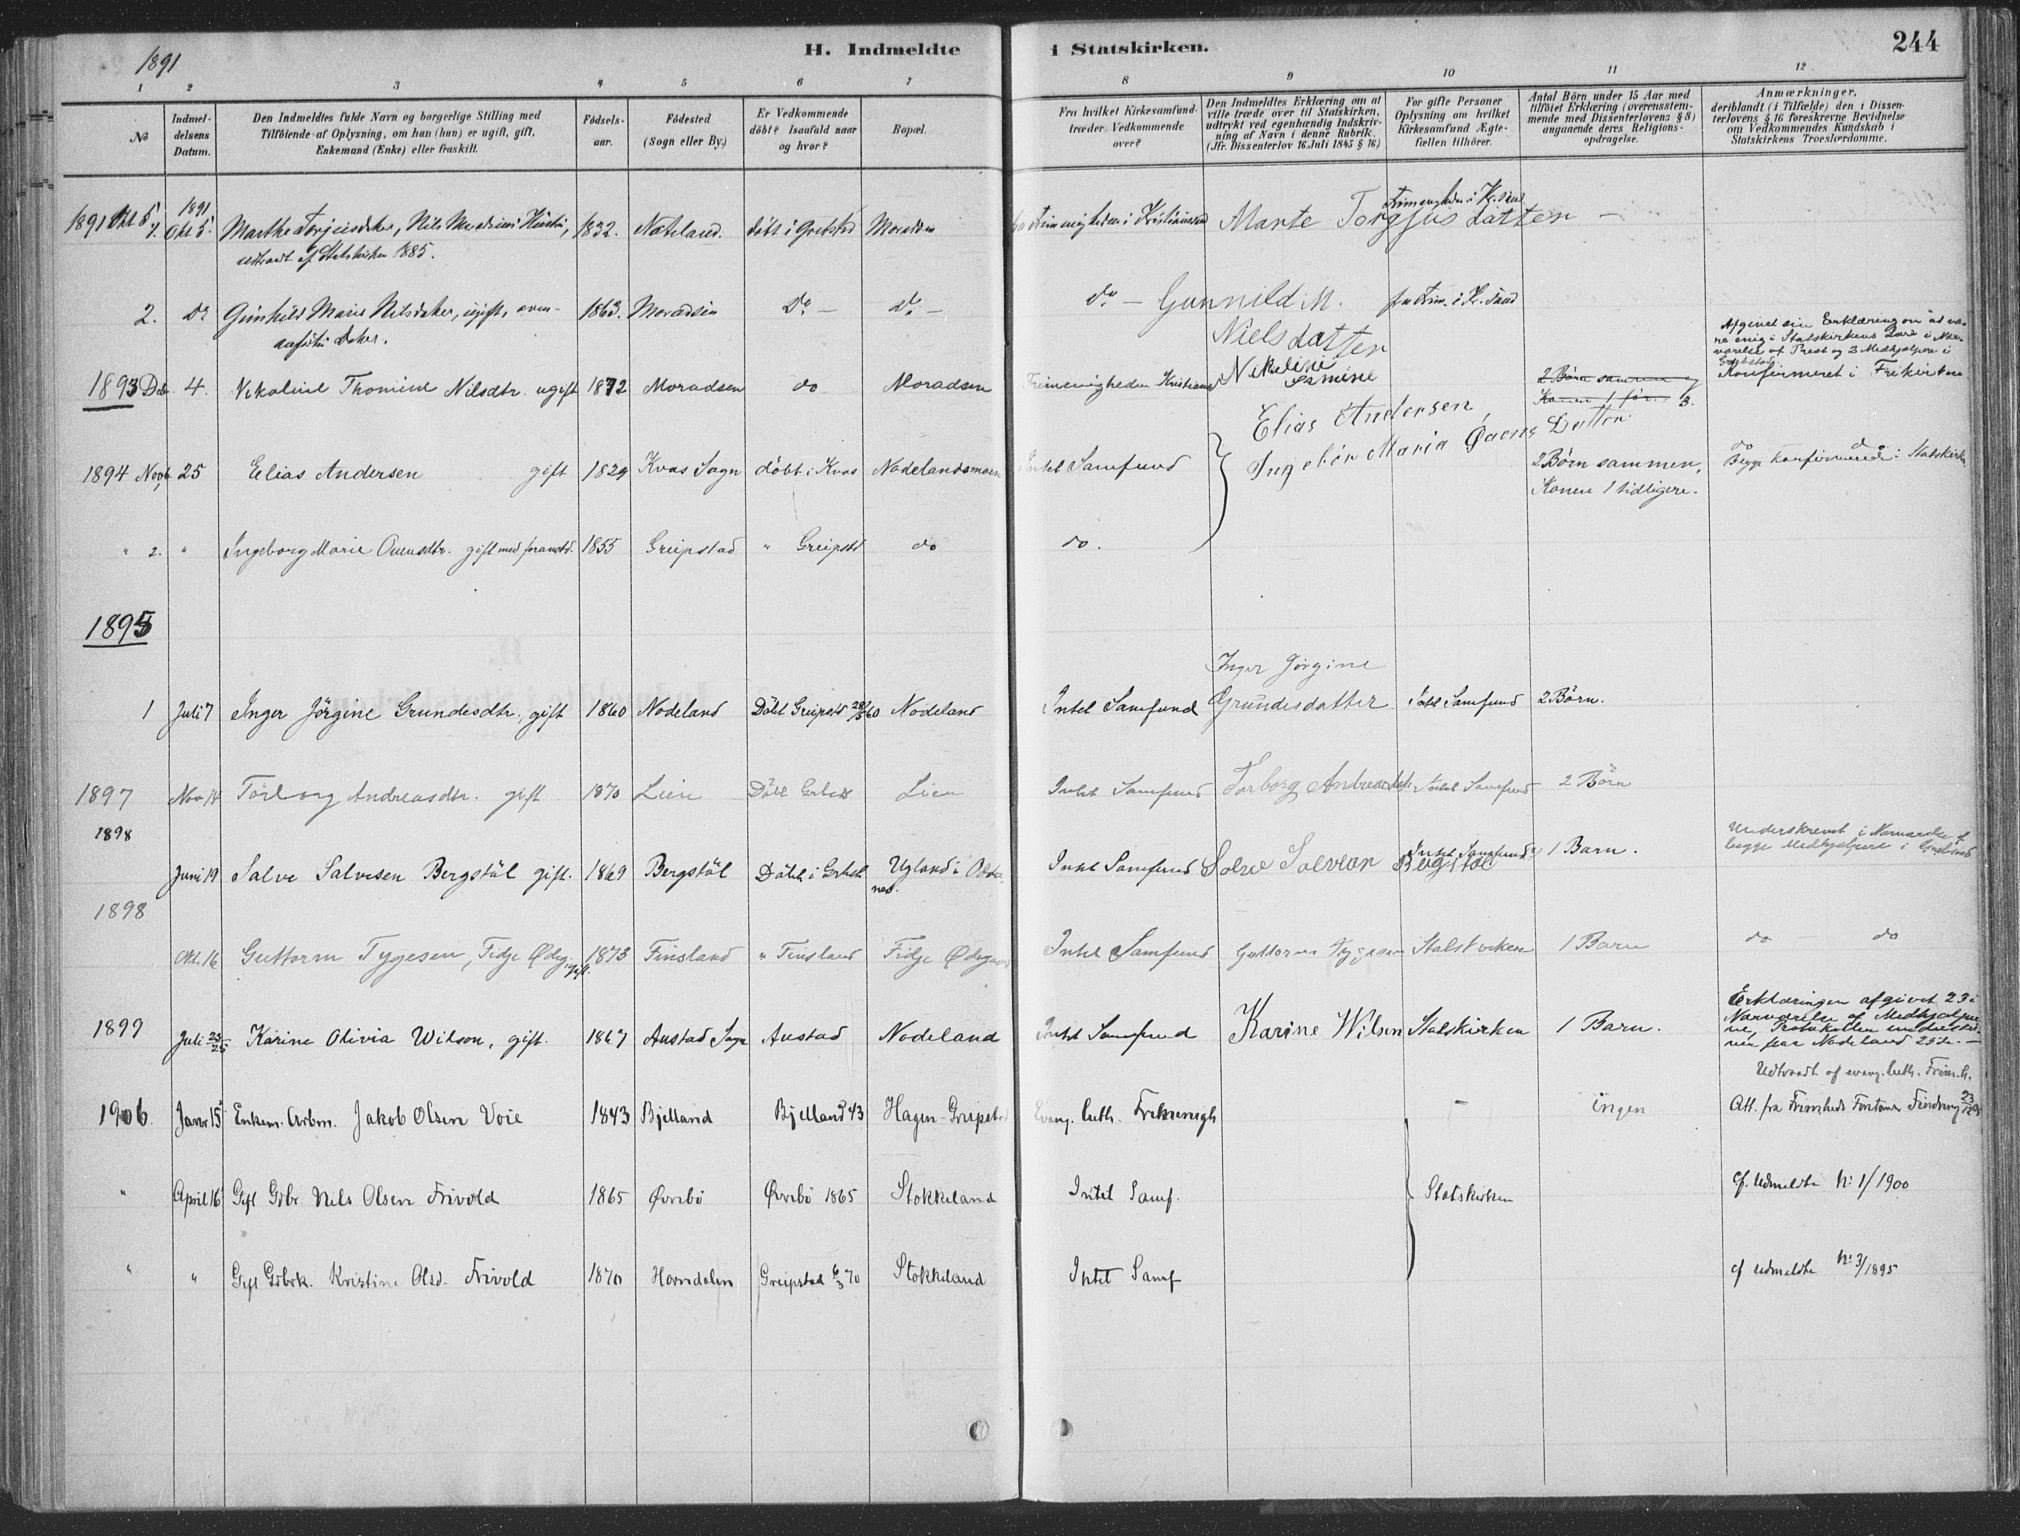 1891
H. Indmeldte
i Statskirken.
244
1 2 3 4 5 6 7 8 9 10 11 12
No
Indmeldelsens Datum.
Den Indmeldtes fulde Navn og borgerlige Stilling med
Tilföiende af Oplysning, om han (hun) er ugift, gift,
Enkemand (Enke) eller fraskilt.
Födselsaar.
Födested
(Sogn eller By.)
Er Vedkommende
döbt? Isaafald naar
og hvor?
Bopæl.
Fra hvilket Kirkesamfund
træder Vedkommende
over?
Den Indmeldtes Erklæring om at
ville træde over til Statskirken,
udtrykt ved egenhændig Indskrivning af Navn i denne Rubrik.
(Jfr. Dissenterlov 16 Juli 1845 § 16)
For gifte Personer
Oplysning om hvilket
Kirkesamfund Ægtefællen tilhörer.
Antal Börn under 15 Aar med
tilföiet Erklæring (overensstemmende med Dissenterlovens § 8)
angaaende deres Religionsopdragelse.
Anmærkninger,
deriblandt (i Tilfælde) den i Dissenterlovens § 16 foreskrevne Bevidnelse
om Vedkommendes Kundskab i
Statskirkens Troeslærdomme.
1891 Okt 5 1. 1891 Okt 5. Marthe Torjeisdtter, Nils 1832. Nateland. döbt i Grebstad Moradsen Frimenigheden i Kristianssand Marte Torgjus datter Frimenigheden i Kr.sand —
udtraadt af Statskirken 1885.
2. Do Gunhild Marie Nilsdatter, ugift, 1863. Moradsen Do — Do — do — Gunnild M. Nielsdatter Frim. i Kr. sand
Afgivet sin Erklæring om at være enig i Statskirkens Lære i Nærværelse af Prest og 2 Medhjælpere i Grebstad
1893 Deb. 4. Nikoline Thomine Nilsdtr. ugift 1872 Moradsen do Moradsen Frimenigheden Kristians Nikoline 2 Börn sammen og Konen 1 før. Konfirmeret i Frikirken
Elias Andersen,
1894 Novb 25 Elias Andersen gift 1829 Kvas Sogn döbt i Kvas Nodelandsmoen Intet Samfund Ingebor Maria Ovens Datter 2 Börn sammen, Konen 1 tidligere. do do Begge konfirmerede i Statskirken
" 2. " Ingeborg Marie Ovensdtr. gift med foranstd. 1855 Greipstad " Greipstd do do.
1895
1 Juli 7 Inger Jörgine Grundesdtr. gift 1860 Nodeland Döbt Greipstd 28/5 60 Nodeland Intet Samfund Inger Jørgine Grundesdatter Intet Samfund 2 Börn.
1897 Nov 14 Torborg Andreasdtr. gift 1870 Lien Döbt Lien Intet Samfund Torborg Andreasdtr Intet Samfund 2 Börn
1898
Juni 19 Salve Salvesen Bergstöl gift. 1869 Bergstöl Döbt i Ugland i Oddernes. Intet Samfund Bergstöl Intet Samfund 1 Barn. Underskrevet i Nærværelse af begge Medhjælpere i
1898
Okt. 16 Guttorm Tygesen, Fidje Ødeg. gift. 1873 Finsland " Finsland Fidje Ødegaard Intet Samfund Guttorm Tygesen Statskirken 1 Barn do do
1899 Juli 23/25 Karine Olivia Wilson, gift. 1867 Austad Sogn Austad Nodeland Intet Samfund Karine Wilsen Statskirken 1 Barn. Erklæringen afgivet 23 i Nærværelse af Medhjælperne, Protokollen underskreven paa Nodeland 25de. —
Udtraadt af evang. luth. Frim.h.
1906. Janr 15 Enkem. Arbm. Jakob Olsen Voie 1843 Bjelland Bjelland 43 Hagen Greipstad Evang. luth. Frimenigh — ingen Att. fra Frimheds Forstander
" April 16 Gift Gdbr. Nils Olsen Frivold 1865 Øvrebö Øvrebö 1865 Stokkeland Intet Samf. Statskirken cf. Udmeldte No 1/1900
" " Gift Gdbrk. Kristine Olsd. Frivold 1870 Horndalen Greipstad 6/3 70 Stokkeland Intet Samf cf Udmeldte No 3/1895